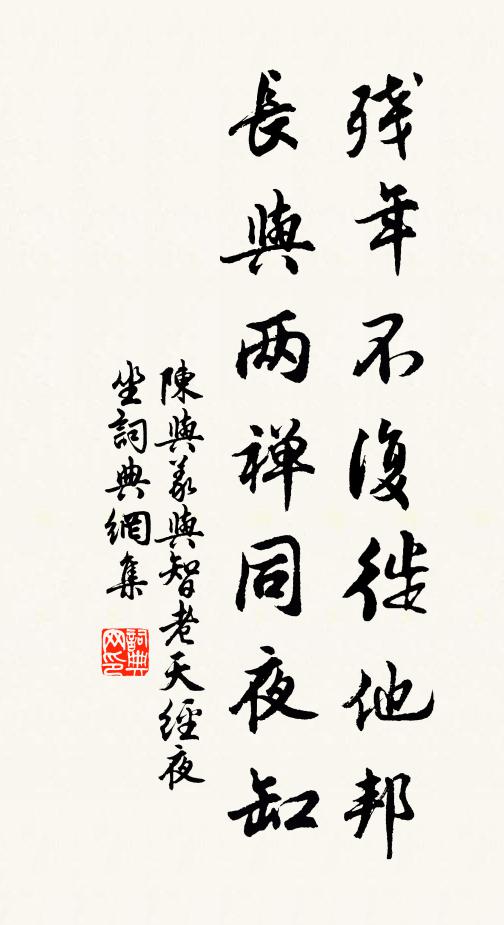 残年不復徙他邦
長與两禅同夜缸
陳與義與智老天經夜
坐詞典網集
詞典
网印